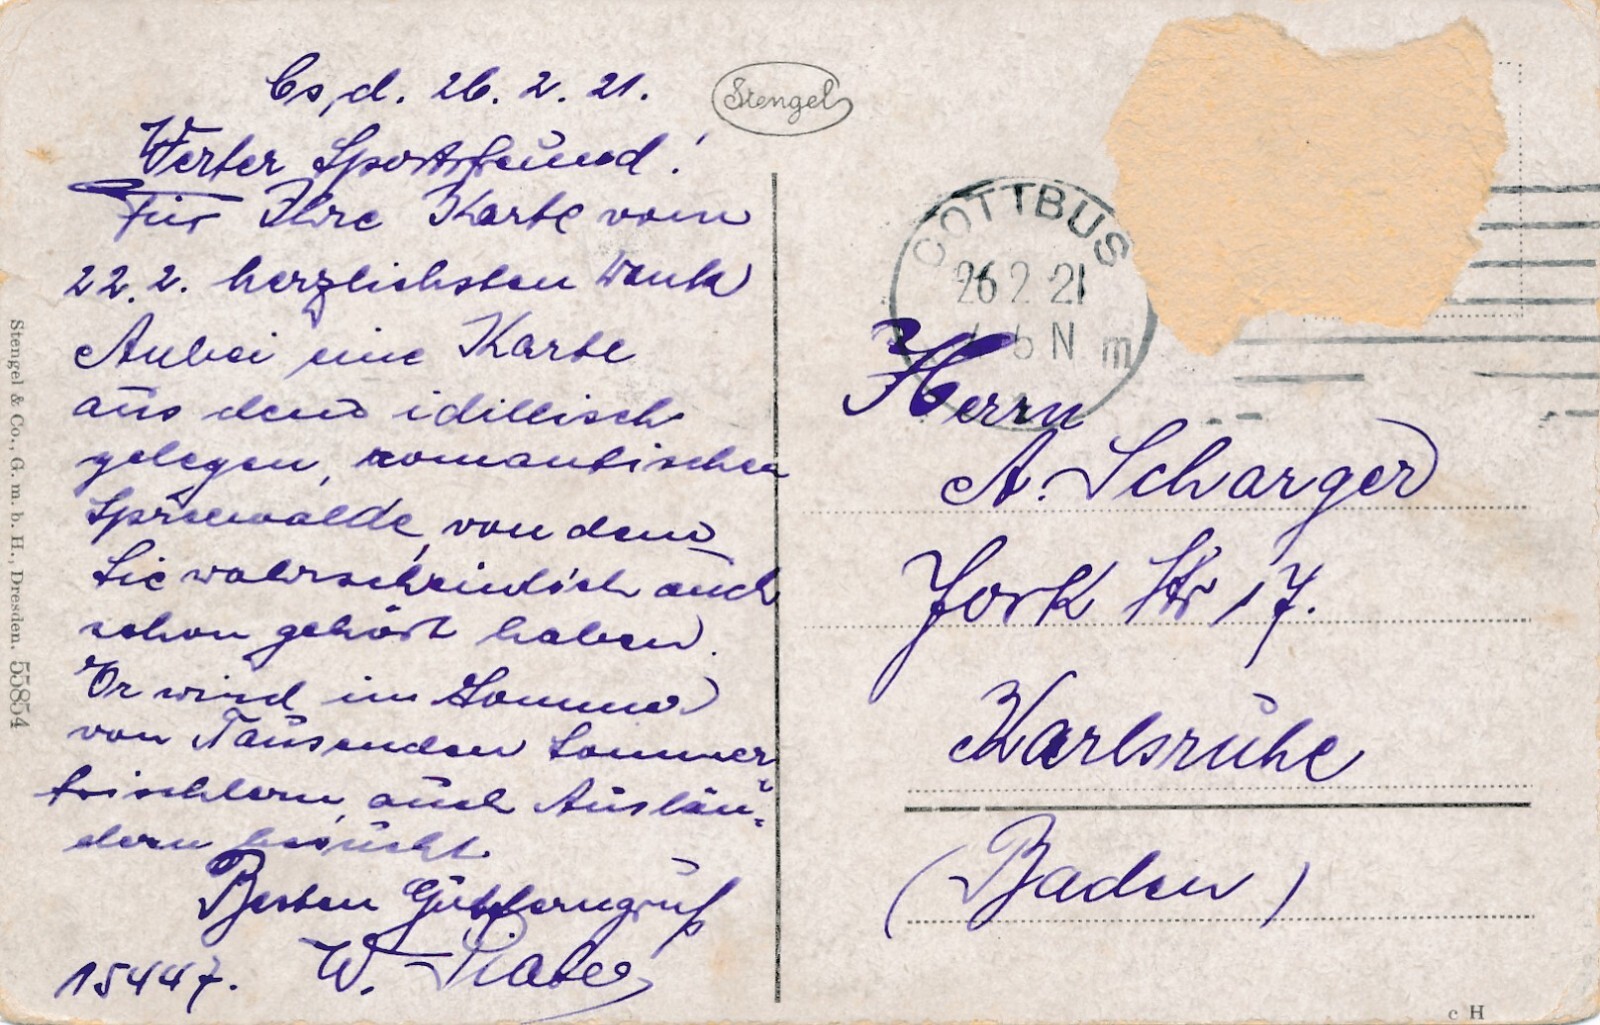 Cs, d. 26. 2. 21.
Werter Sportsfreund!
Für Ihre Karte vom
22. 2. herzlichsten Dank
Anbei eine Karte
aus dem idillisch
gelegen, romantischen
Spreewalde, von dem
Sie wahrscheinlich auch
schon gehört haben.
Er wird im Sommer
von Tausenden Sommer-
frischlern, auch Auslän-
dern besucht.
Besten Gruß
15447. W.
Stengel & Co., G. m. b. H., Dresden. 55854
Stengel
COTTBUS
26 2 21
6 N
m
Herrn
A. Scharger
York Str 17.
Karlsruhe
(Baden)
c H